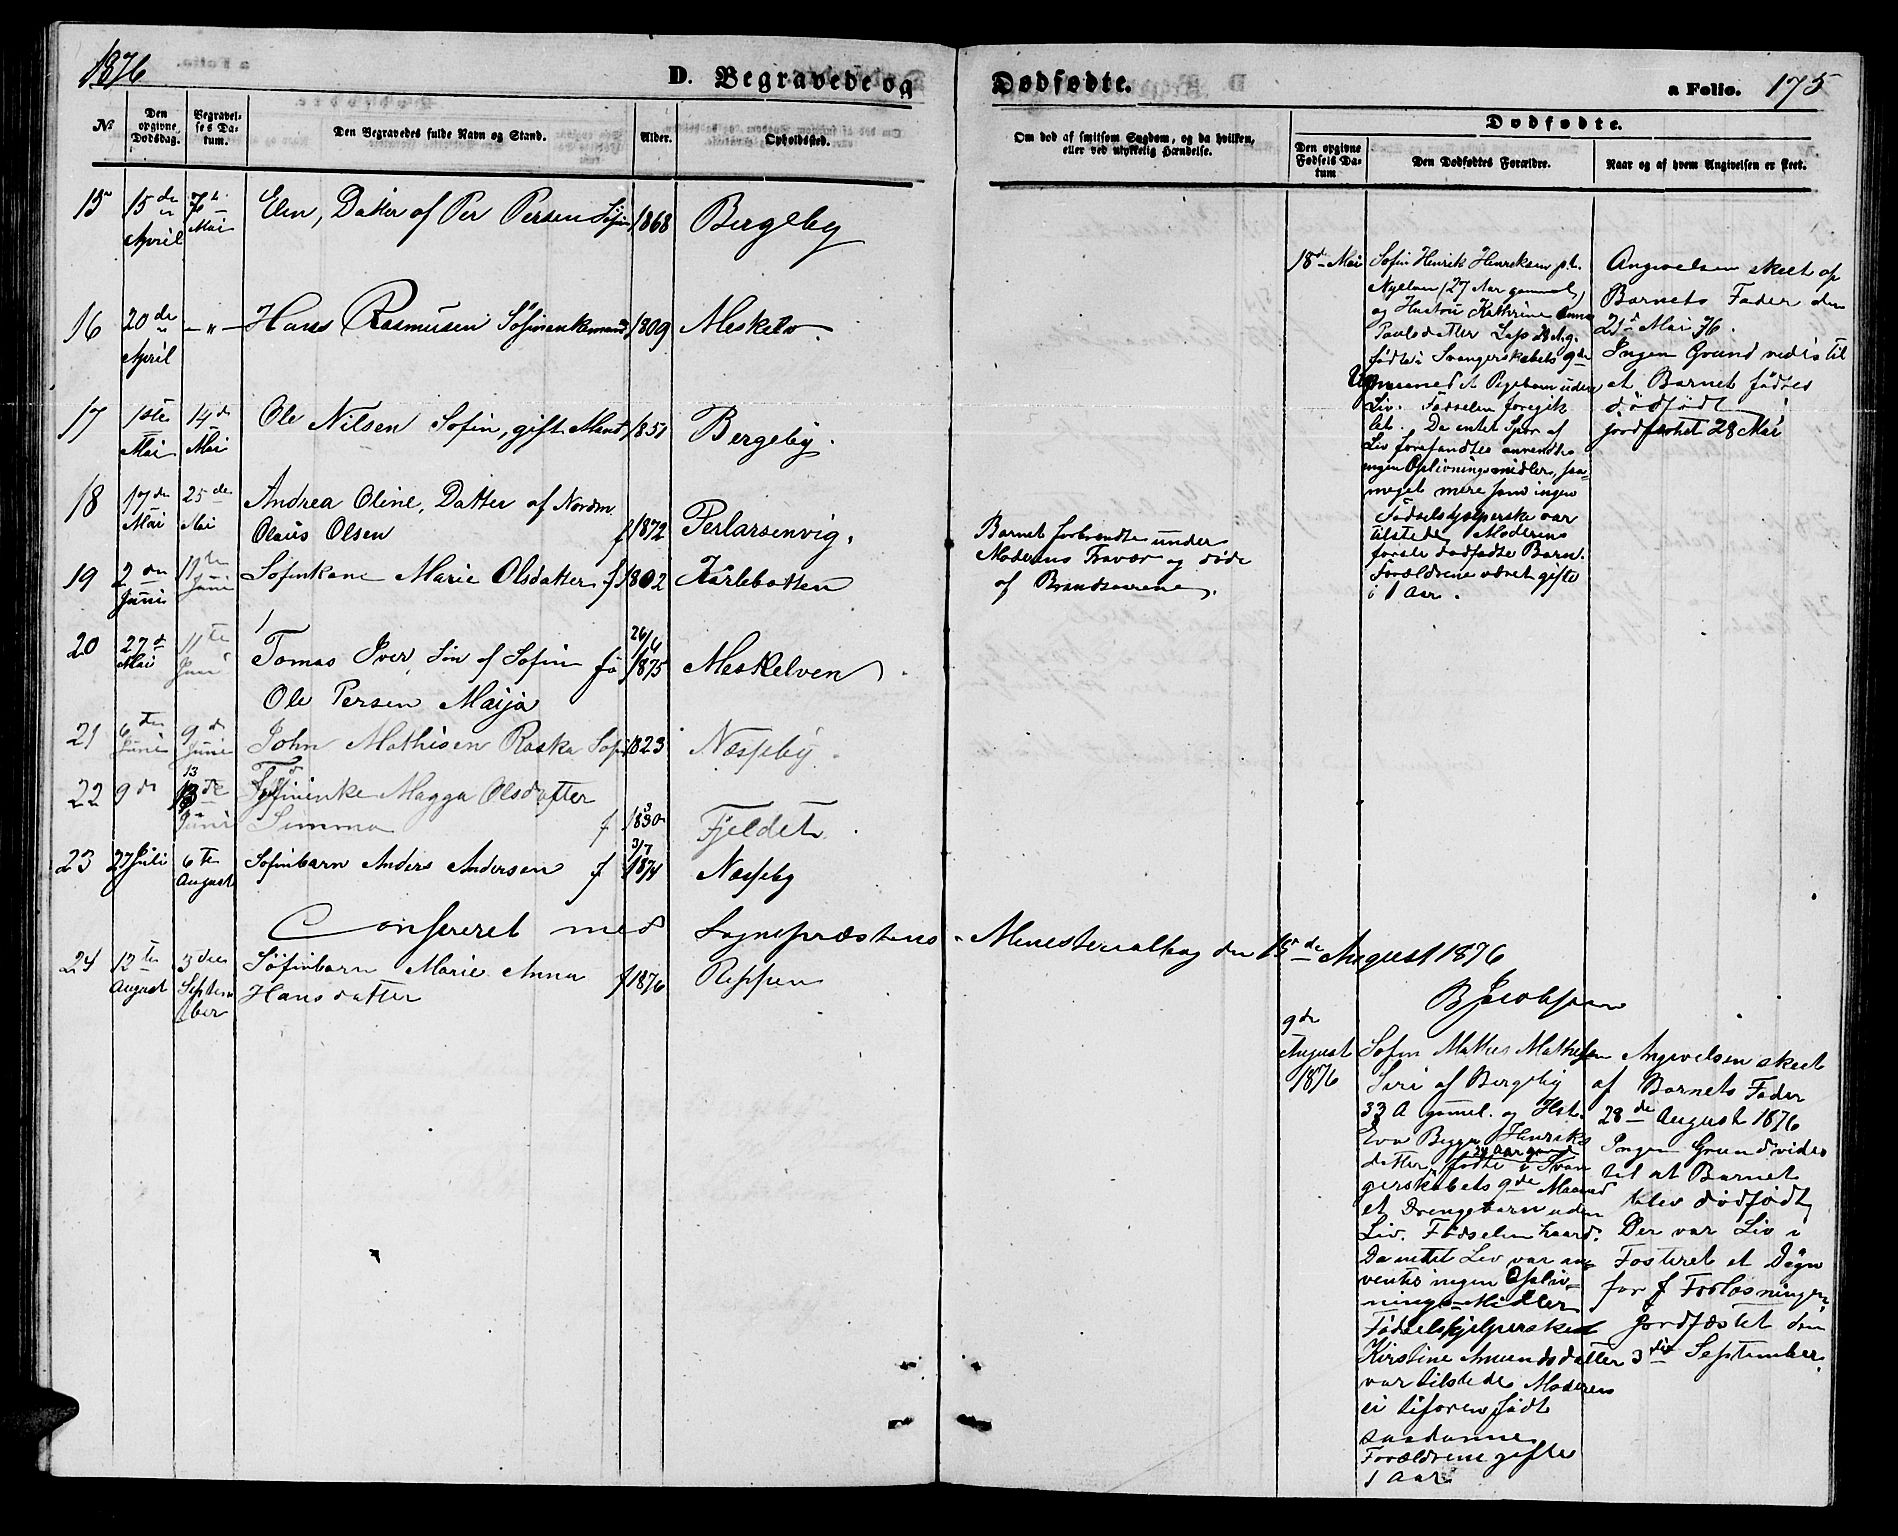 1876
D. Begravede og
Dødfødte.
a Folio. 175
No
Den opgivne Dødsdag.
Begravelses Datum.
Den Begravedes fulde Navn og Stand.
Alder.
Opholdssted.
Om død af smitsom Sygdom, og da hvilken, eller ved ulykkelig Hændelse.
Dødfødte.
Den opgivne Fødsels Datum
Den Dødfødtes Forældre.
Naar og af hvem Angivelsen er skeet.
15 15de April 7de Mai Elen, Datter af Per Persen Søfin 1868 Bergeby
16 20de April – " – Hans Rasmusen Søfinenkemand 1809 Meskelv
17 1ste Mai 14d Mai Ole Nilsen Søfin, gift Mand 1851 Bergeby.
18 17de Mai 25de Mai Andrea Oline, Datter af Nordm.
Olaus Olsen f 1872 Perlarsenvig.
Barnet forbrændte under
Moderens Fravær og døde
af Brandsaarene.
19 2den Juni 11te Juni Søfinkone Marie Olsdatter f 1802 Karlebotten
20 27d Mai 11te Juni Tomas Iver, Søn af Søfin fø 26/6 1875 Meskelven
Ole Persen Maija
21 6te Juni 9d Juni John Mathisen Raska Søfin 1823 Næsseby.
22 9de 13de Juni Søfinenke Magga Olsdatter
Simma f 1830 Fjeldet.
23 27 Juli 6te August Søfinbarn Anders Andersen f 3/7 1874 Næsseby
Confereret med Sognepræstens Ministerialbog den 15de August 1876
B Jacobsen
24 12te August 3die September Søfinbarn Marie Anna f 1876 Reppen
Hansdatter
18d Mai
Søfin Henrik Henriksen p.t.
Nyelven (27 Aar gammel)
og Hustru Kathrine Anna
Paulsdatter
fødte i Svangerskabets 9de
Maaned et Pigebarn uden
Liv. Fødselen foregik
let. Da intet Spor af
Liv forefandtes anvendtes
ingen Oplivningsmidler, saa
meget mere som ingen
Fødselshjælperske var
tilstede. Moderens
første dødfødte Barn.
Forældrene været gifte
i 1 Aar.
Angivelsen skeet af
Barnets Fader den
21d Mai 76.
Ingen Grund vides til
at Barnet fødtes
dødfødt
jordfæstet 28 Mai
9de
August
1876
Søfin Mathis Mathisen
Siri af Bergeby
33 A gammel. og Hst.
Eva Bigga Henriks
datter fødte i Svan
gerskabets 9de Maaned
et Drengebarn uden
Liv. Fødselen haard.
Da intet Liv var an
ventes ingen Opliv
nings-Midler
Fødselshjelpersken
Kirstine Amundsdatter
var tilstede. Moderen
ei tiforen født
saadanne.
Forældrene gifte
1 Aar
Angivelsen skeet
af Barnets Fader
28de August 1876
Ingen Grund vides
til at Barnet
blev dødfødt
Der var Liv i
Fosteret et Døgn
før Forløsningen.
Jordfæstet den
3die September.